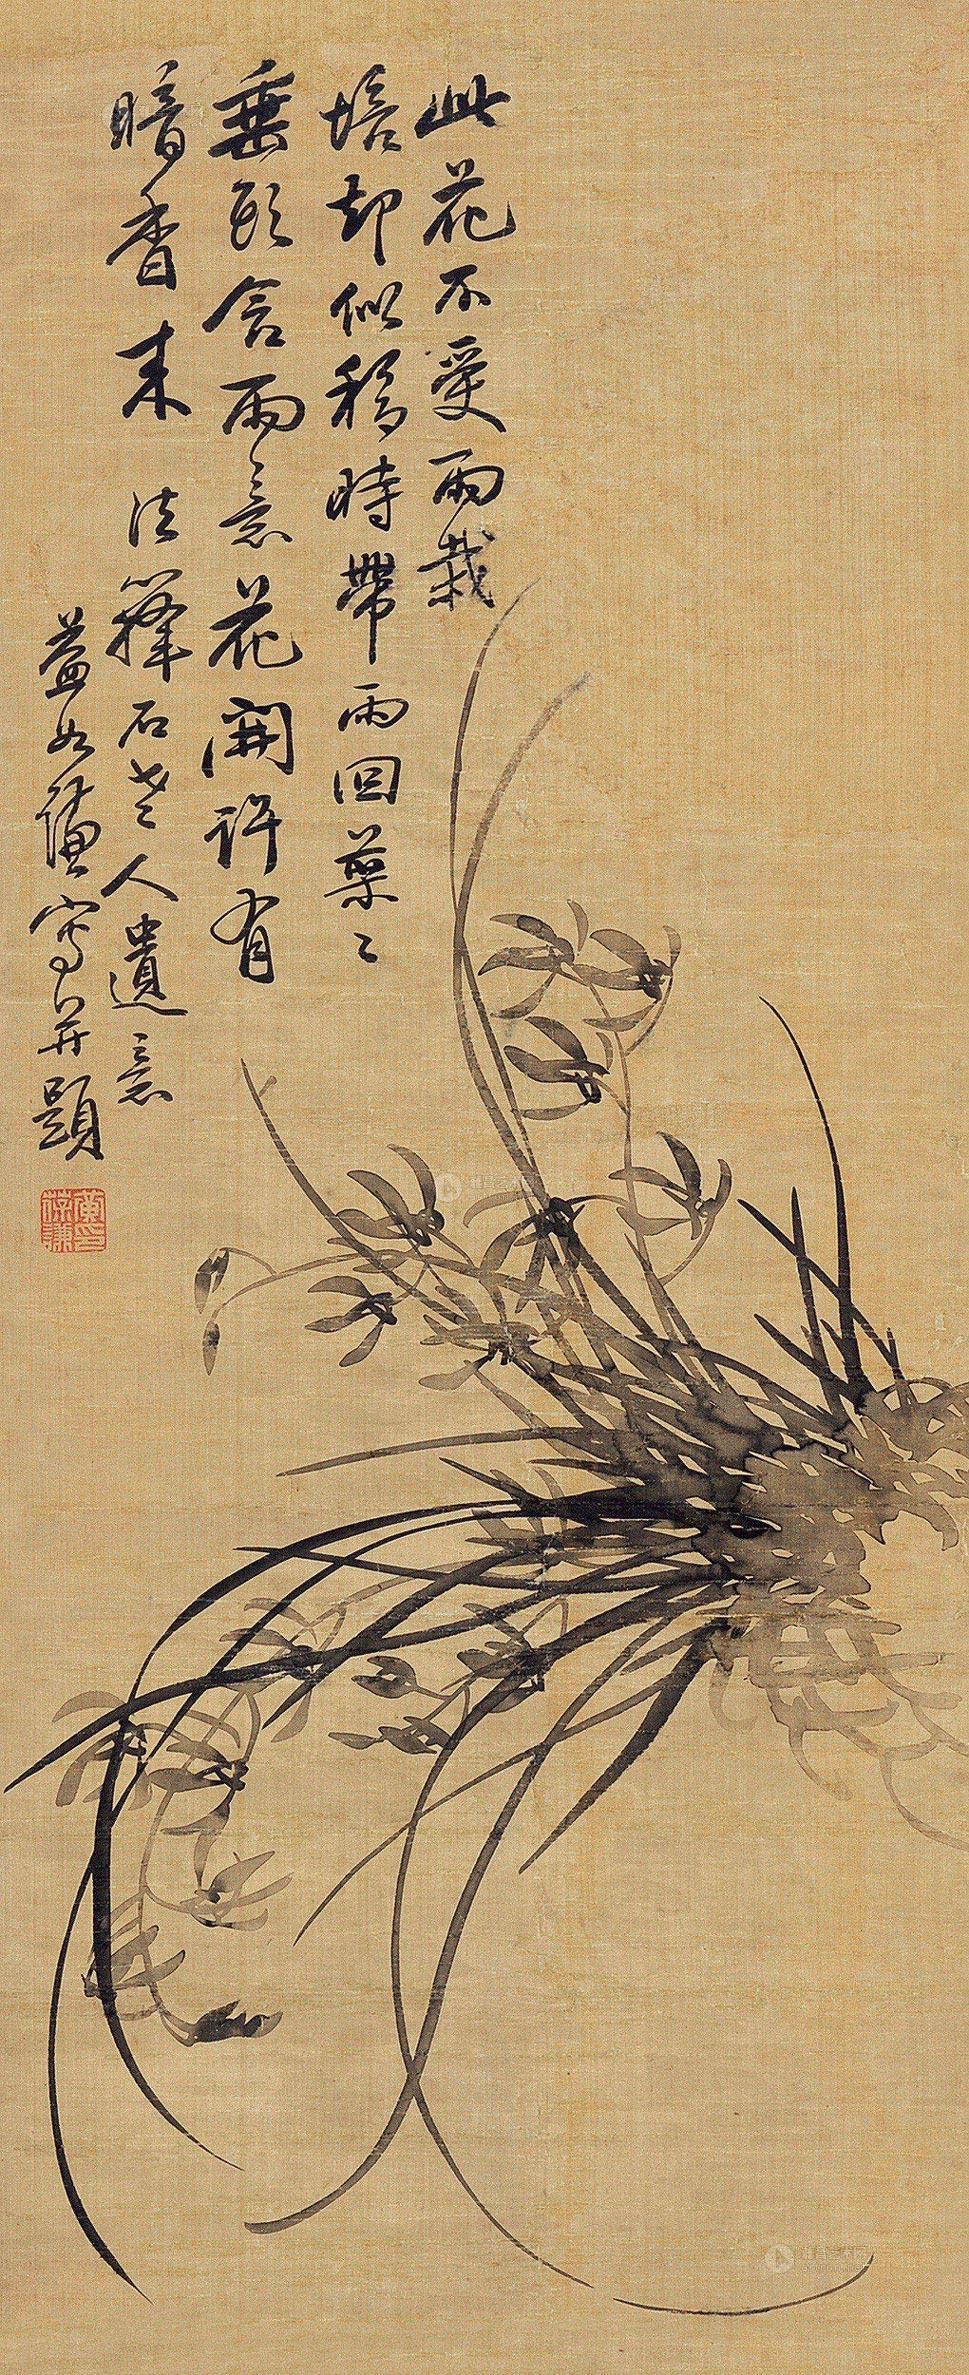 此花不受雨栽
培却似移時帶雨回葉〻
垂頭含雨意花開許有
暗香来 法籜石老人遺意
益如謙寫并題